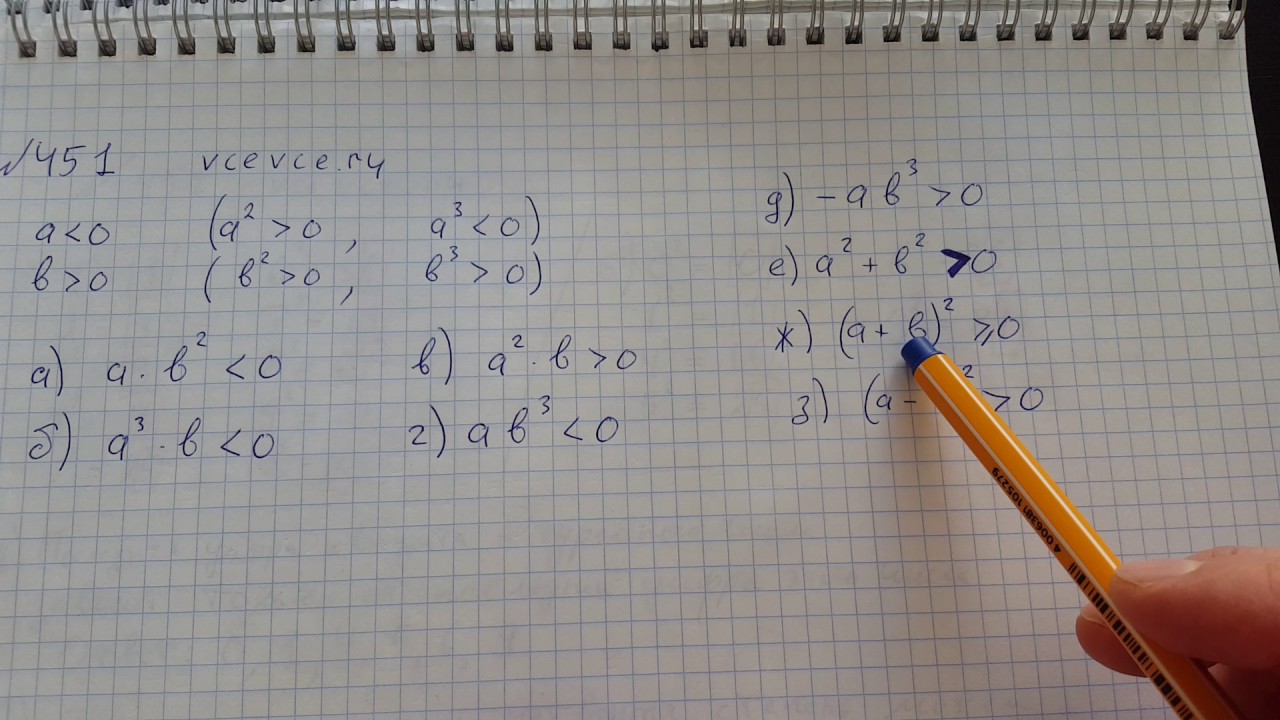 №451 vcevce.ru
a<0 (a² >0 , a³ <0)
в>0 ( в² >0 , в³ > 0)
а) a · в² < 0
б) a³ · в < 0
в) a² · в > 0
г) a в³ < 0
д) - a в³ > 0
е) a² + в² > 0
ж) (a + в)² ⩾ 0
з) (a - ² > 0
4 006381 105279